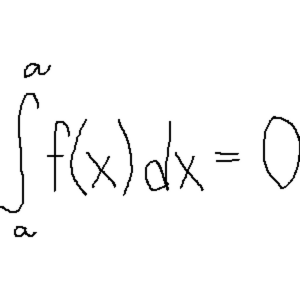 ∫ₐᵃ f(x) dx = 0